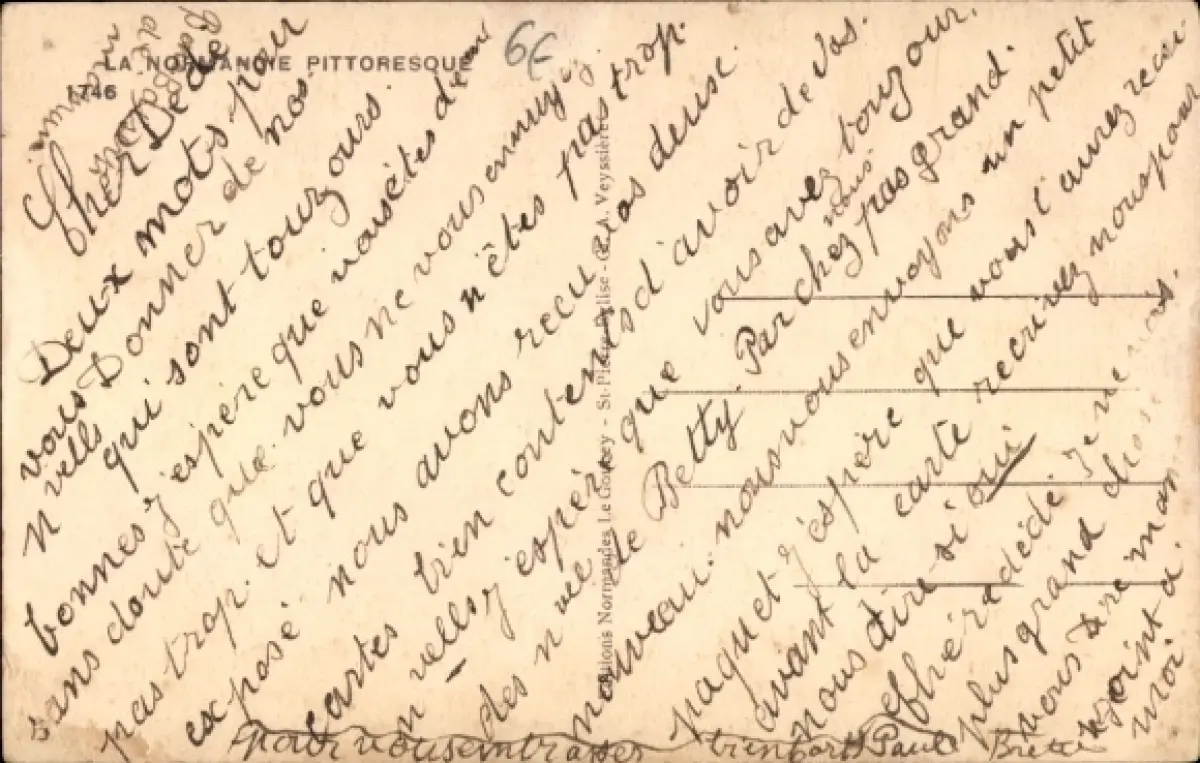 LA NORMANDIE PITTORESQUE
1746
6€
Cher Dédé
Deux mots pour
vous Donner de nos
n velles qui sont toujours
bonnes j'espère que vous êtes de m
sans doute que vous ne vous ennuy
pas trop. et que vous n'êtes pas trop.
exposé nous avons recu vos deuse
cartes bien contents d'avoir de vos.
n velles j'espère que vous avez toujour.
des n velle de Betty. Par chez nous pas grand.
nouveau. nous vous envoyons un petit
paquet j'espère que vous l'aurez recu
avant la carte recrivez nous pour
nous dire si oui
cher dédé Je ne
plus grand chose
vous Dire man
joint a
moi
pour vous embrasser bien fort Paul
Editions Normandes Le Goubey - St-Pierre-Eglise - G. A. Veyssière